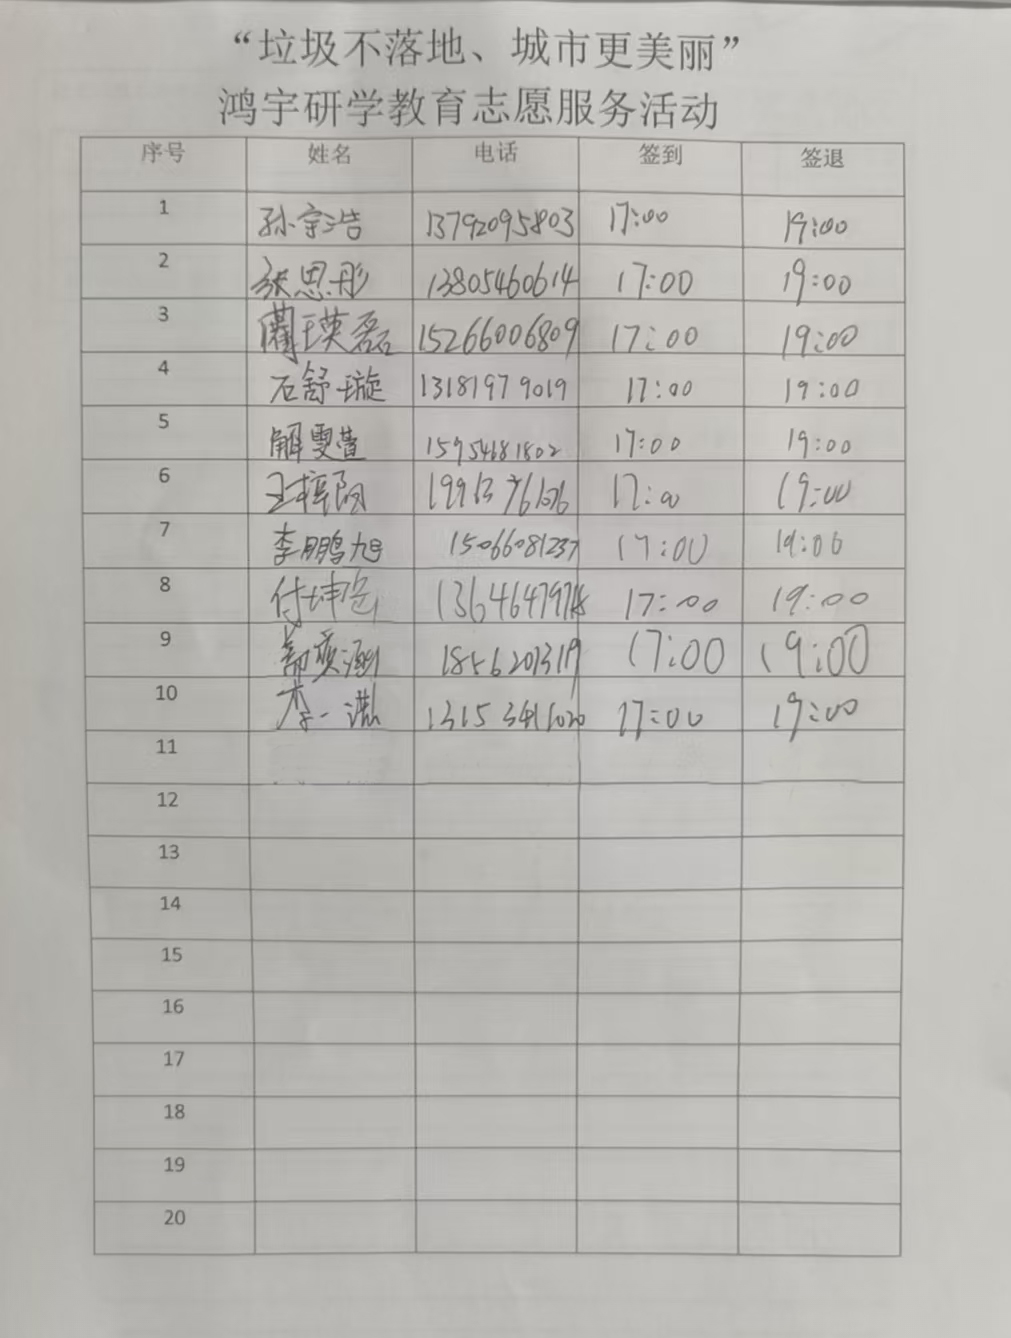 “垃圾不落地、城市更美丽”
鸿宇研学教育志愿服务活动
序号 姓名 电话 签到 签退
1 孙宇浩 13792095803 17:00 19:00
2 张思彤 13805460614 17:00 19:00
3 蔺瑛磊 15266006809 17:00 19:00
4 石舒璇 13181979019 17:00 19:00
5 解雯萱 15954681802 17:00 19:00
6 17:00 19:00
7 李鹏旭 15066081237 17:00 19:00
8 17:00 19:00
9 18562013119 17:00 19:00
10 17:00 19:00
11
12
13
14
15
16
17
18
19
20